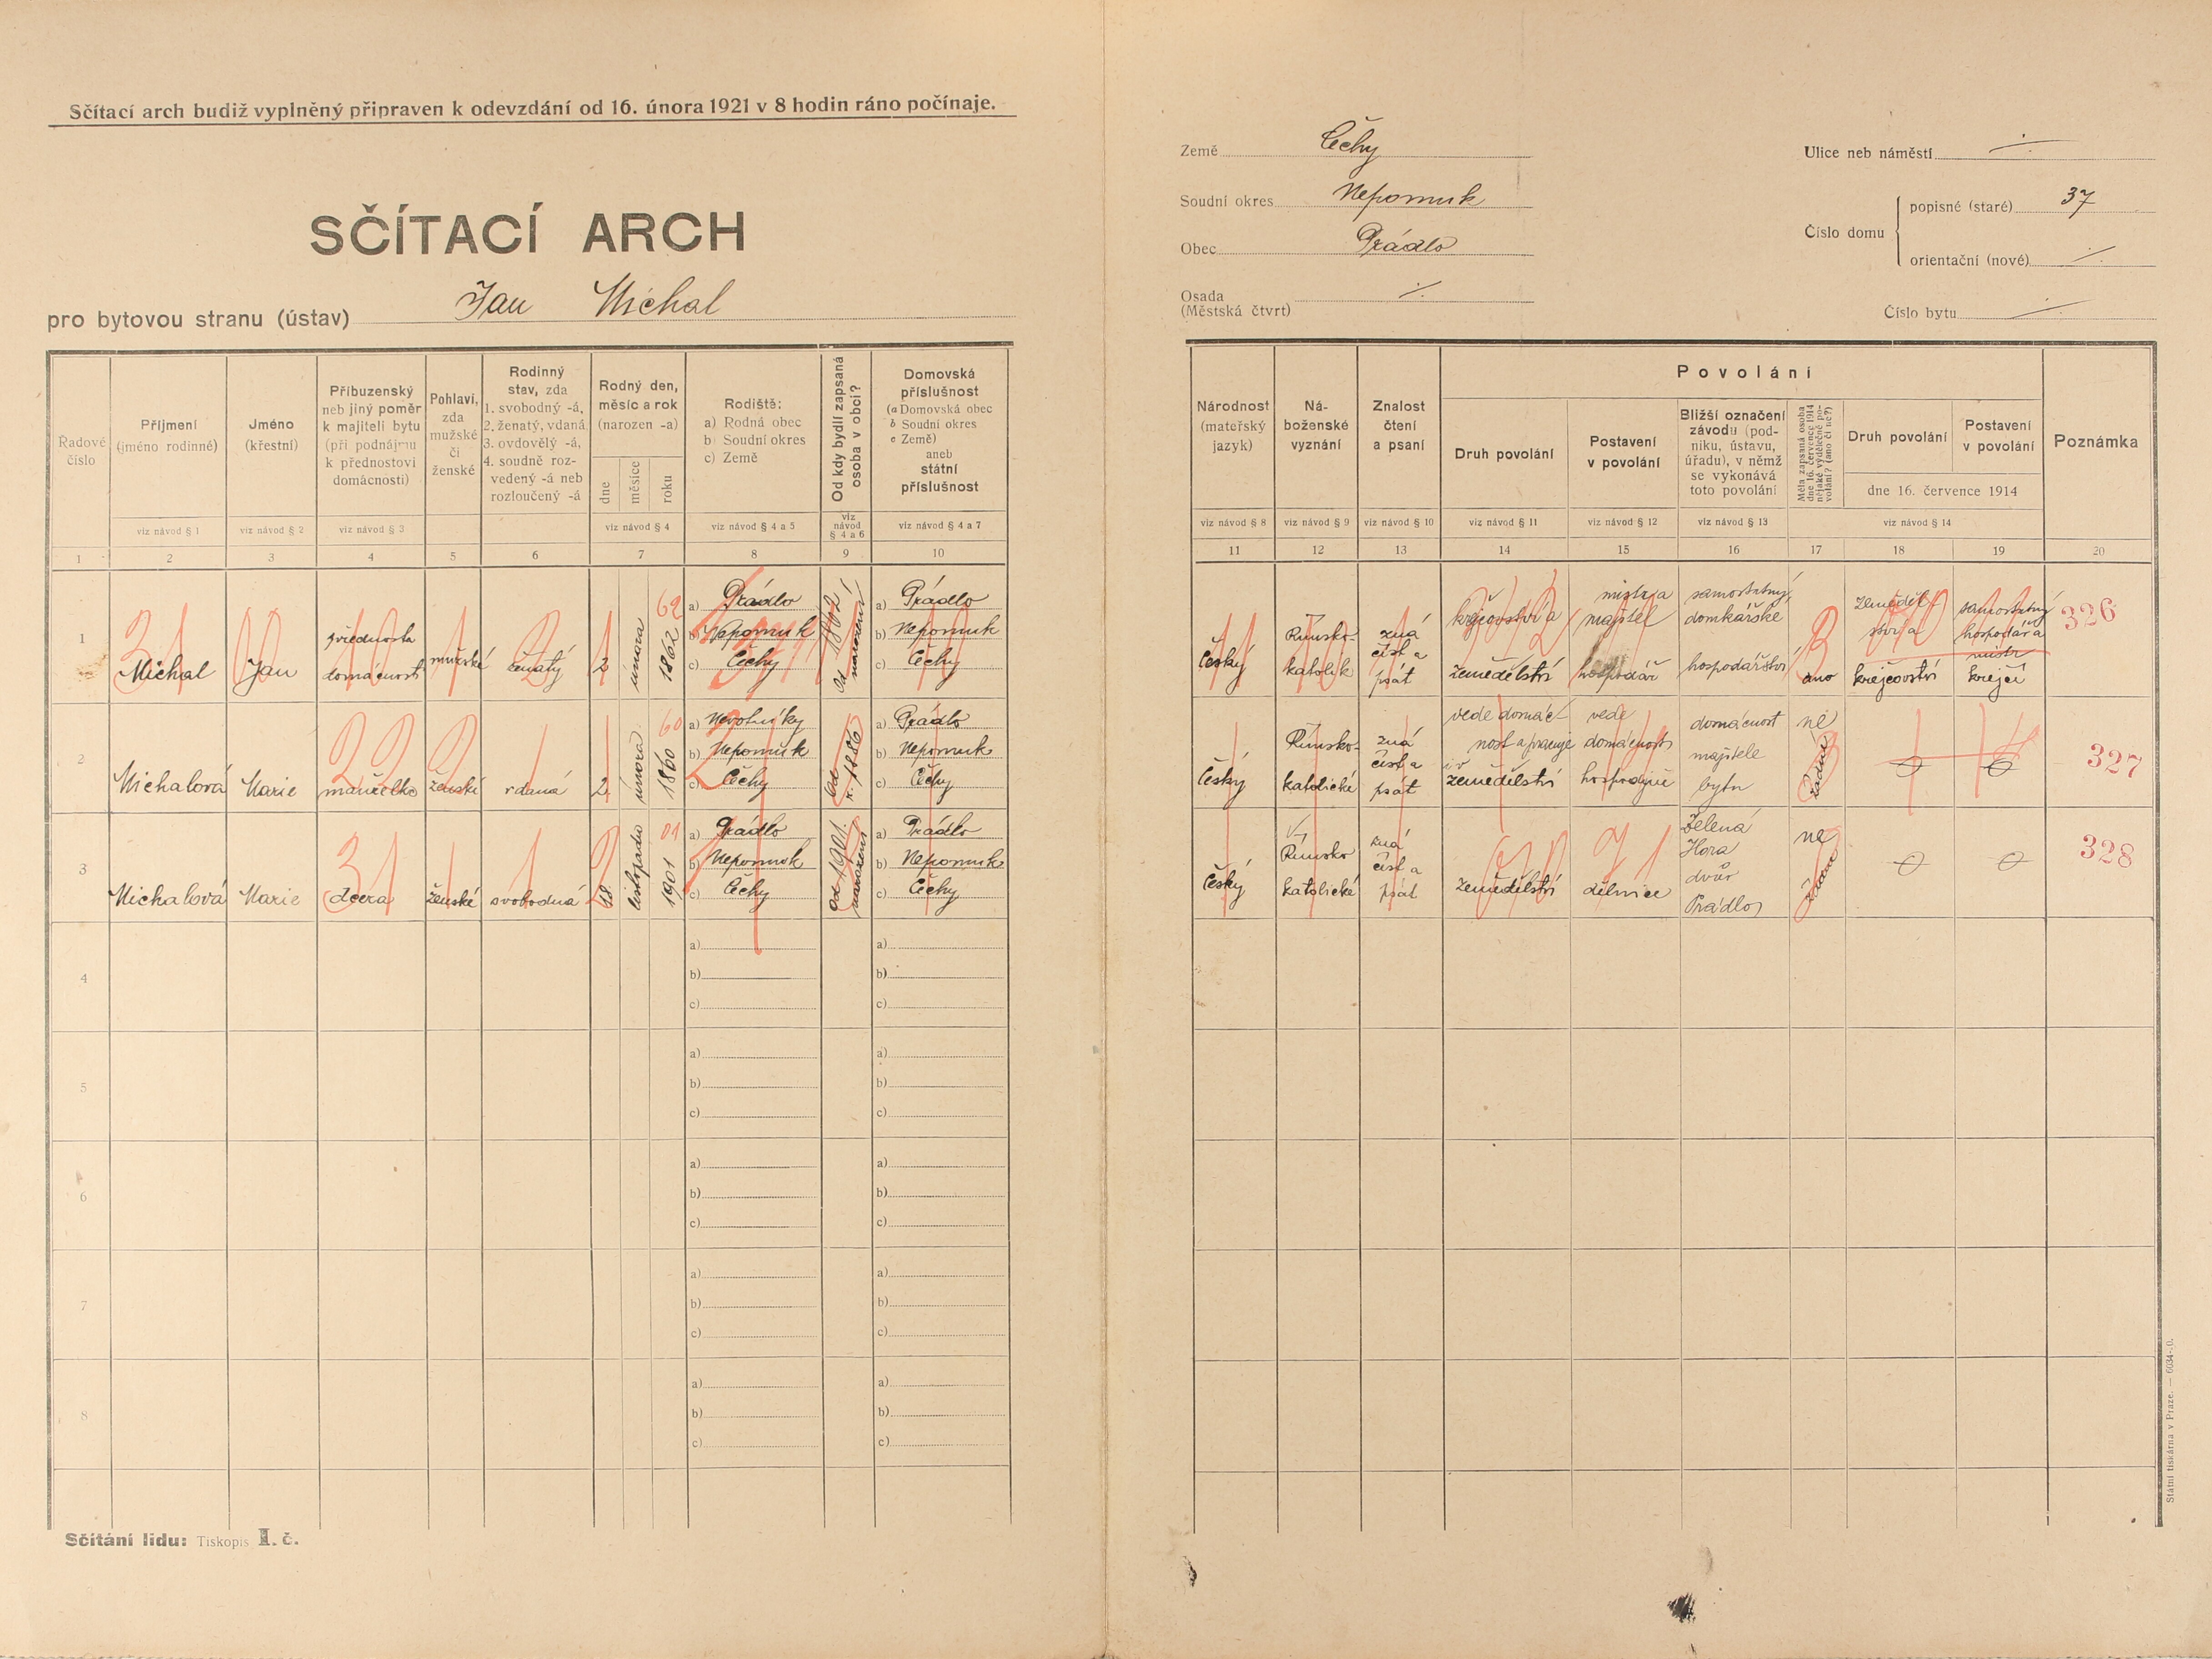 Sčítací arch budiž vyplněný připraven k odevzdání od 16. února 1921 v 8 hodin ráno počínaje.
SČÍTACÍ ARCH
pro bytovou stranu (ústav) Jan Michal
Země Čechy
Soudní okres Nepomuk
Obec Prádlo
Osada
(Městská čtvrt) ./.
Ulice neb náměstí ./.
Číslo domu
popisné (staré) 37
orientační (nové) ./.
Číslo bytu ./.
Řadové
číslo
Příjmení
(jméno rodinné)
viz návod § 1
Jméno
(křestní)
viz návod § 2
Příbuzenský
neb jiný poměr
k majiteli bytu
(při podnájmu
k přednostovi
domácnosti)
viz návod § 3
Pohlaví,
zda
mužské
či
ženské
Rodinný
stav, zda
1. svobodný -á,
2. ženatý, vdaná
3. ovdovělý -á,
4. soudně roz-
vedený -á neb
rozloučený -á
Rodný den,
měsíc a rok
(narozen -a)
dne
měsíce
roku
viz návod § 4
Rodiště:
a) Rodná obec
b) Soudní okres
c) Země
viz návod § 4 a 5
Od kdy bydlí zapsaná
osoba v obci?
viz
návod
§ 4 a 6
Domovská
příslušnost
(a Domovská obec
b Soudní okres
c Země)
aneb
státní
příslušnost
viz návod § 4 a 7
Národnost
(mateřský
jazyk)
viz návod § 8
Ná-
boženské
vyznání
viz návod § 9
Znalost
čtení
a psaní
viz návod § 10
Povolání
Druh povolání
viz návod § 11
Postavení
v povolání
viz návod § 12
Bližší označení
závodu (pod-
niku, ústavu,
úřadu), v němž
se vykonává
toto povolání
viz návod § 13
Měla zapsaná osoba
dne 16. července 1914
nějaké výdělečné po-
volání? (ano či ne?)
Druh povolání
Postavení
v povolání
dne 16. července 1914
viz návod § 14
Poznámka
1 2 3 4 5 6 7 8 9 10
11 12 13 14 15 16 17 18 19 20
1
Michal
Jan
přednosta
domácnosti
mužské
ženatý
2
února
1862
62
a) Prádlo
b) Nepomuk
c) Čechy
od 1862
narození
a) Prádlo
b) Nepomuk
c) Čechy
český
Římsko-
katolík
zná
číst a
psát
krejčovství a
zemědělství
mistr a
majitel
hospodář
samostatný
domkářské
hospodářství
ano
zeměděl-
ství a
krejčovství
samostatný
hospodář a
mistr
krejčí
326
2
Michalová
Marie
manželka
ženské
vdaná
2
února
1860
60
a)
b) Nepomuk
c) Čechy
od
r. 1886
a) Prádlo
b) Nepomuk
c) Čechy
český
Římsko-
katolické
zná
číst a
psát
vede domác-
nost a pracuje
v
zemědělství
vede
domácnost
hospodyně
domácnost
majitele
bytu
ne
žádné
327
3
Michalová
Marie
dcera
ženské
svobodná
listopadu
1901
01
a) Prádlo
b) Nepomuk
c) Čechy
od 1901
narození
a) Prádlo
b) Nepomuk
c) Čechy
český
Římsko
katolické
zná
číst a
psát
zemědělství
dělnice
Zelená
Hora
dvůr
Prádlo
ne
žádné
328
4
a)
b)
c)
a)
b)
c)
5
a)
b)
c)
a)
b)
c)
6
a)
b)
c)
a)
b)
c)
7
a)
b)
c)
a)
b)
c)
8
a)
b)
c)
a)
b)
c)
Sčítání lidu: Tiskopis I. č.
Státní tiskárna v Praze. — 6034-.0.